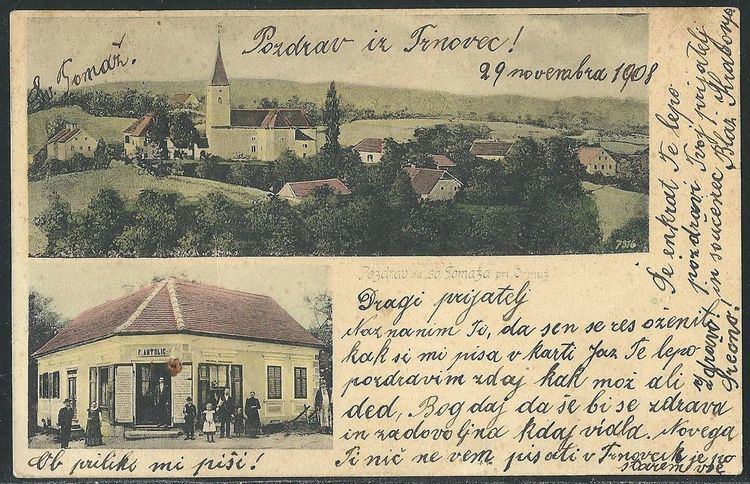 Pozdrav iz Trnovec!
Sv. Tomaž.
29 novembra 1908
7316
Pozdrav od Sv. Tomaža pri
F. ANTOLIC
Dragi prijatelj
Naznanim Ti, da sen se res oženil
kak si mi pisa v karti Jaz Te lepo
pozdravim zdaj kak mož ali
ded, Bog daj da še bi se zdrava
in zadovoljna kdaj vidla. Novega
Ti nič ne vem pisati v Trnovcih je po
starem vse
Ob priliki mi piši!
Še enkrat Te lepo
pozdravi Tvoj prijatelj
in součenec
Zdravo!
Srečno!